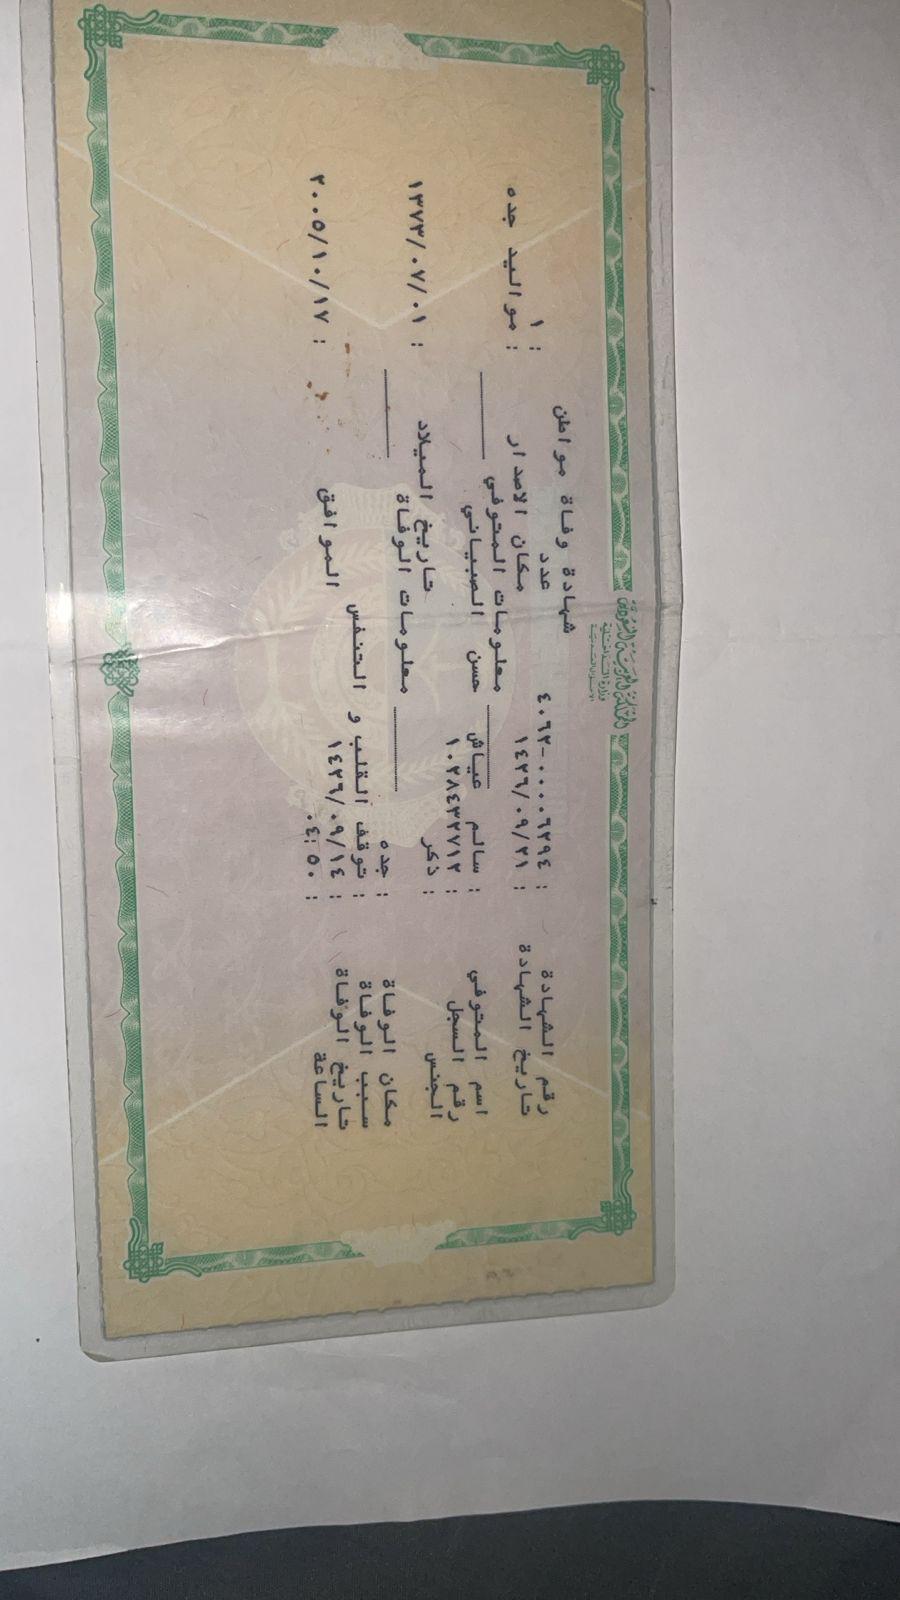 المملكة العربية السعودية
وزارة الداخلية
الأحوال المدنية
شهادة وفاة مواطن
رقم الشهادة : ٤٠٦٢-٠٠٠٠٦٢٩٤ عدد : ١
تاريخ الشهادة : ١٤٢٦/٠٩/٢١ مكان الاصدار : مواليد جده
معلومات المتوفي
اسم المتوفي : سالم عياش حسن الصبياني
رقم السجل : ١٠٢٨٤٣٢٧١٢
الجنس : ذكر تاريخ الميلاد : ١٣٧٣/٠٧/٠١
معلومات الوفاة
مكان الوفاة : جده
سبب الوفاة : توقف القلب و التنفس
تاريخ الوفاة : ١٤٢٦/٠٩/١٤ الموافق : ٢٠٠٥/١٠/١٧
الساعة : ٠٤:٥٠